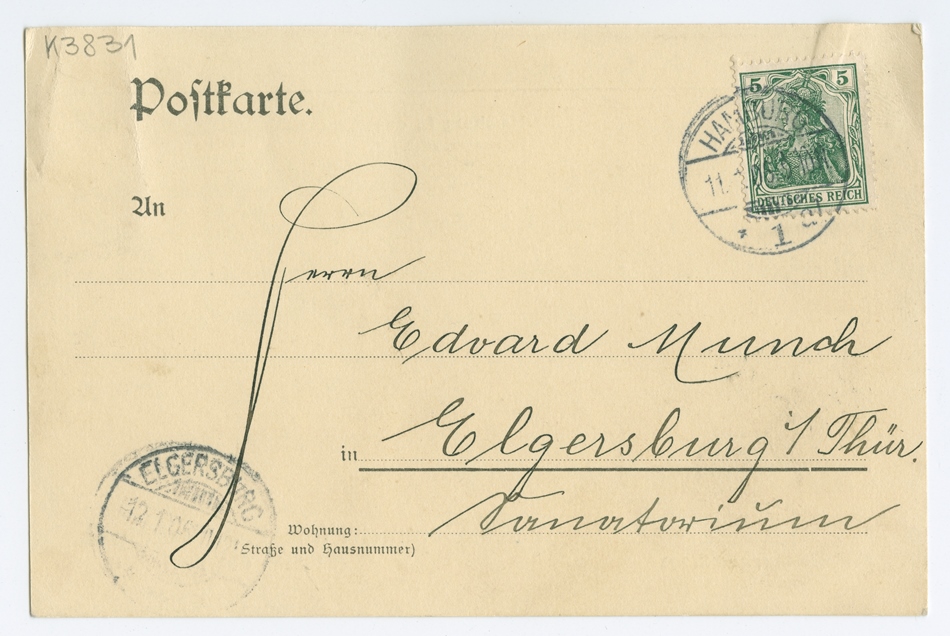 K3831
Postkarte.
5 5
DEUTSCHES REICH
HAMBURG
11.1
* 1
An
Herrn
Edvard Munch
in Elgersburg i/Thür.
Wohnung: Sanatorium
(Straße und Hausnummer)
ELGERSBURG
12.1.06